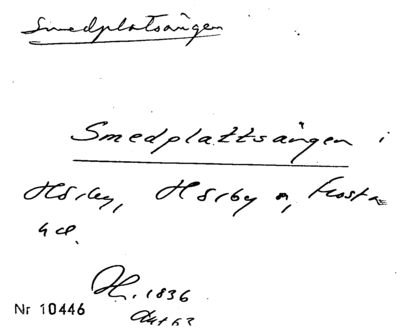 Smedplatsången
Smedplattsången i
Hörby, Hörby s, Frosta
hd.
H. 1836
Nr 10446